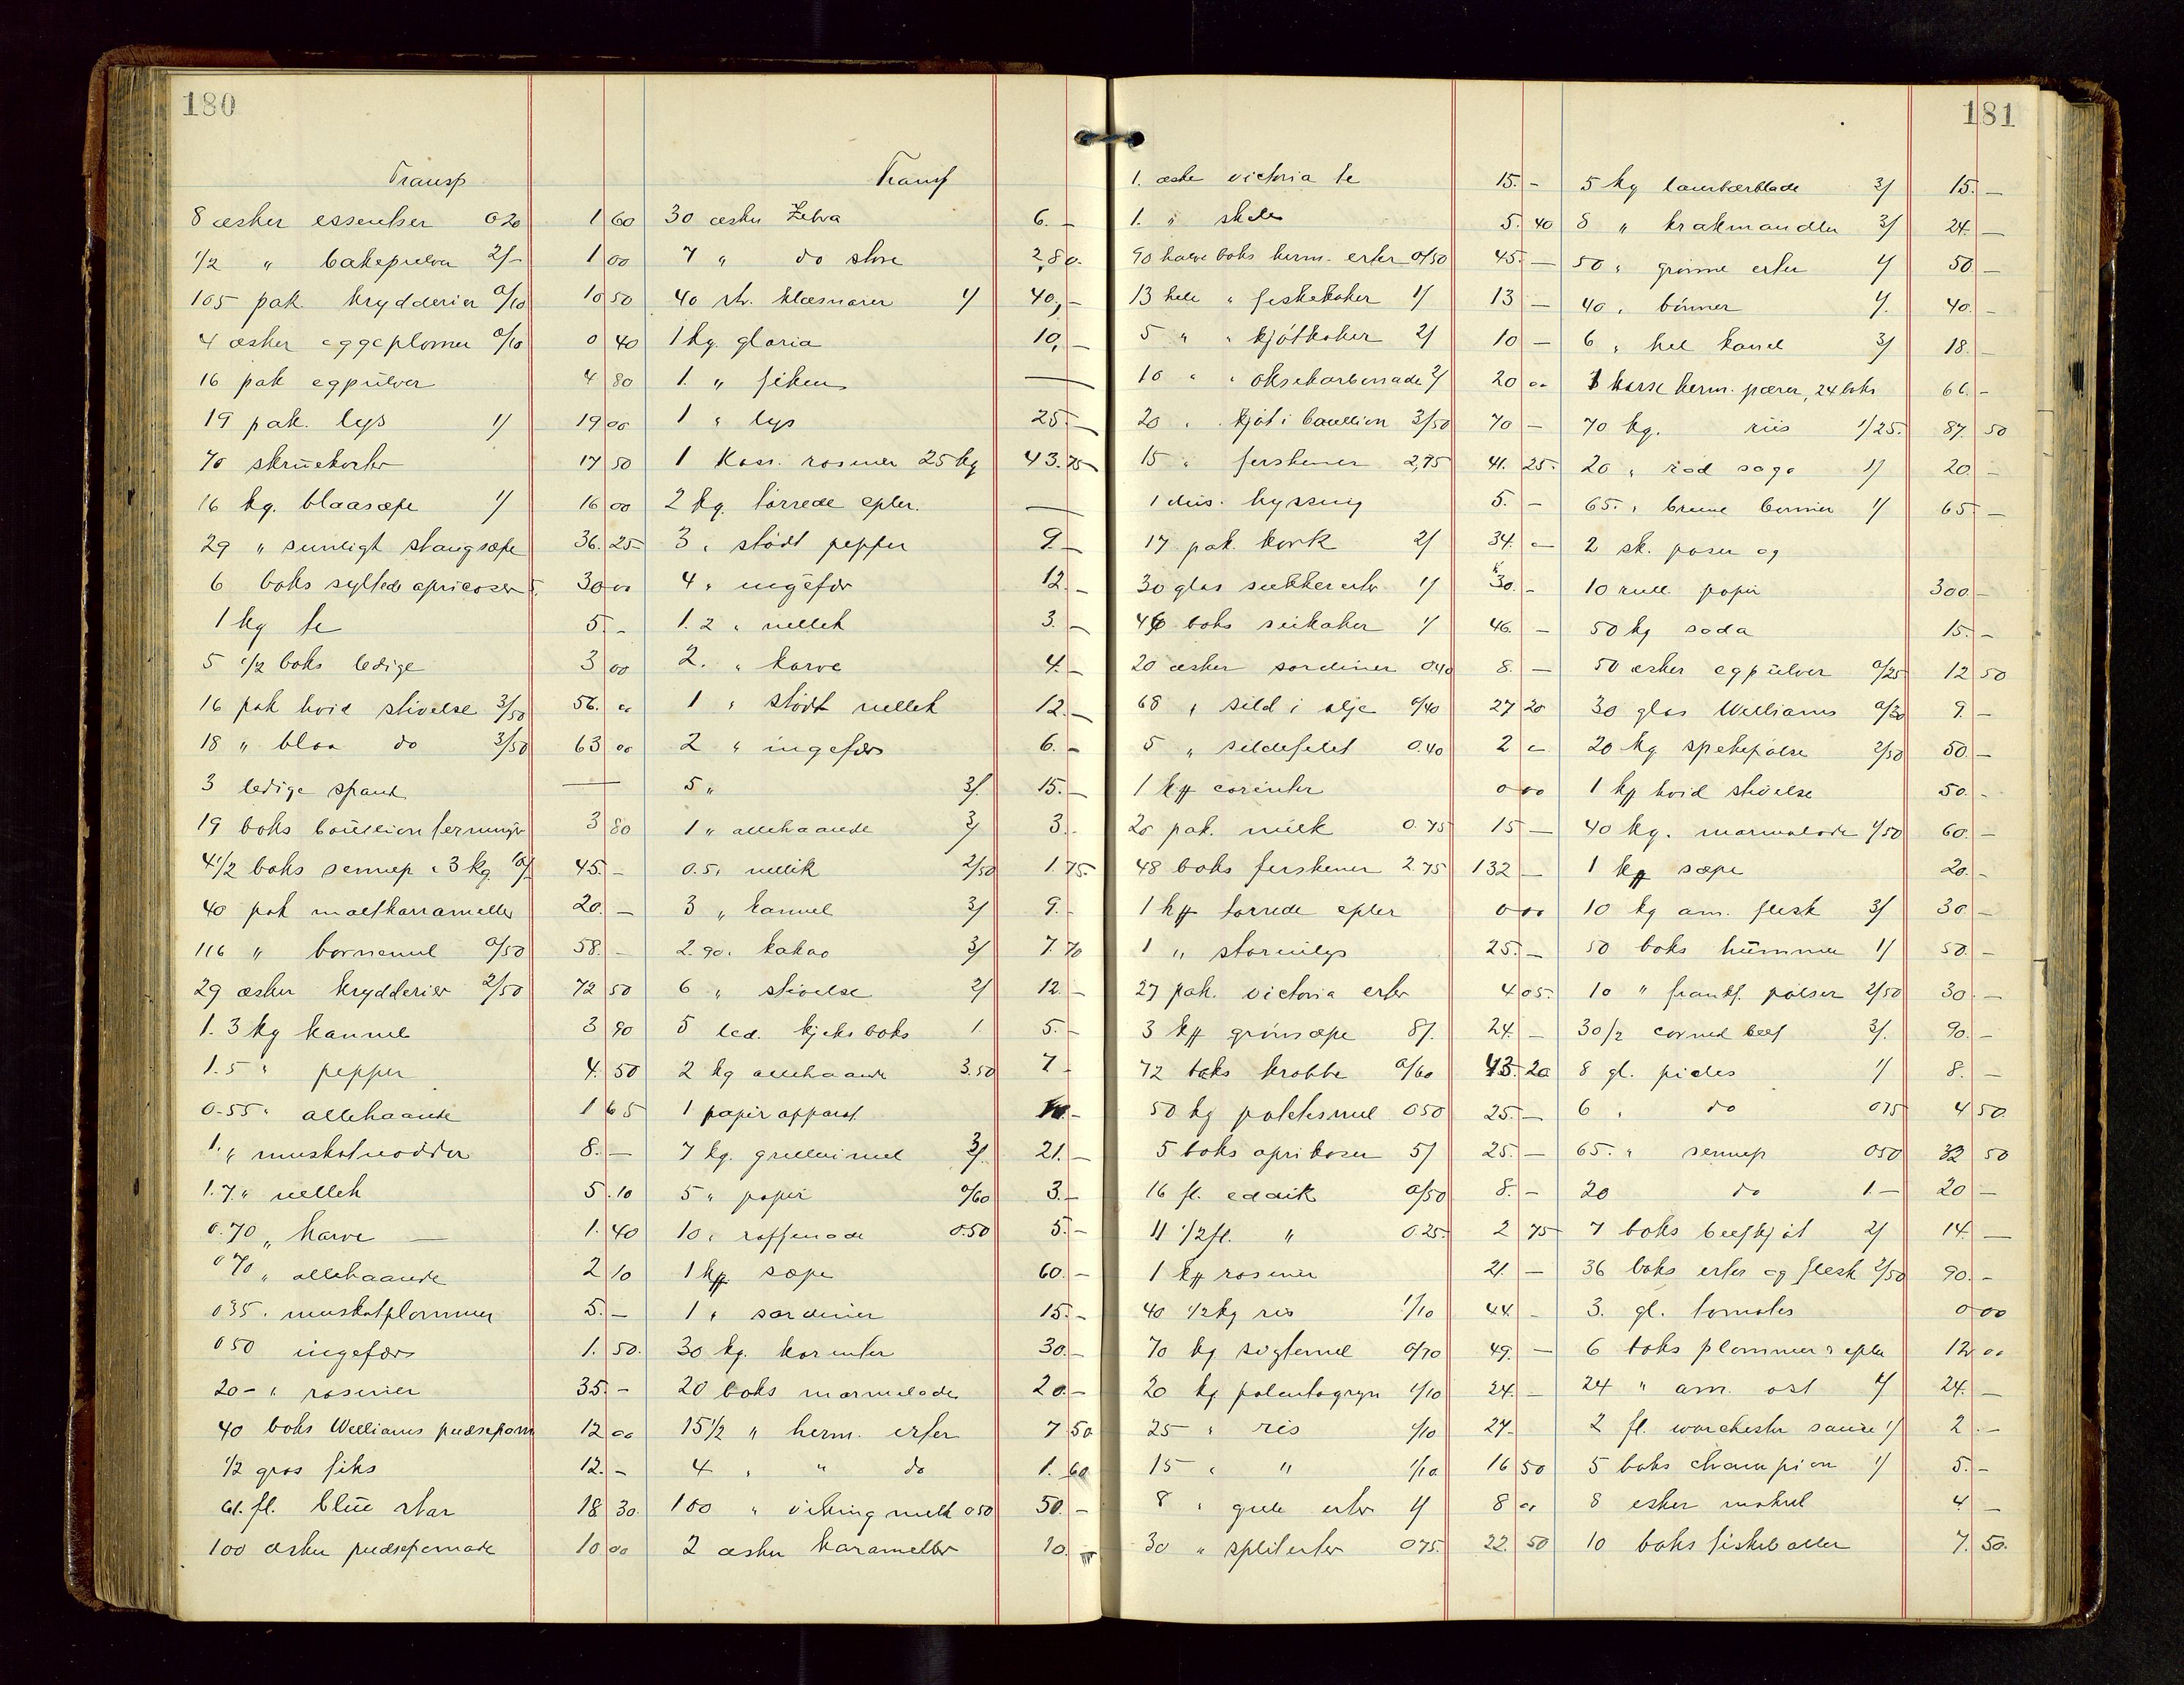 180
Transp
8 æsker essentser 0 20 1 60
1/2 " bakepulver 2/- 1 00
105 pak krydderier 0/10 10 50
4 æsker eggeplomer 0/10 0 40
16 pak egpulver 4 80
19 pak. lys 1/ 19 00
70 skruekorker 17 50
16 kg. blaasæpe 1/ 16 00
29 " sunligt stangsæpe 36. 25
6 boks syltede apricoser 5. 30 00
1 kg te 5. -
5 1/2 boks ledige 3 00
16 pak hvid stivelse 3/50 56. 00
18 " blaa do 3/50 63 00
3 ledige spand —
19 boks boullion terninger 3 80
4 1/2 boks sennep a 3 kg 10/ 45. -
40 pak maltkarameller 20. -
116 " barnemel 0/50 58. -
29 æsker krydderier 2/50 72 50
1. 3 kg kannel 3 90
1. 5 " pepper 4. 50
0.55 " allehaande 1 65
1. " muskatnødder 8. -
1. 7 " nellek 5. 10
0.70 " karve — 1. 40
0 70 " allehaande 2 10
0 35 . muskatplommer 5. -
0 50 ingefær 1. 50.
20 - " rosiner 35. -
40 boks Williams pudsepom 12 00
1/2 gros fiks 12. -
61. fl. blue star 18 30.
100 æsker pudsepomade 10 00
Transp
30 æsker Zebra 6. -
7 " do store 2,80.
40 str. klæsnorer 1/ 40,-
1 kg. gloria 10, -
1. " fiken —
1 " lys 25. -
1 Kass. rosiner 25 kg 43. 75
2 kg. tørrede epler. —
3 " stødt pepper 9. -
4 " ingefær 12. -
1. 2 " nellek 3. -
2. " karve 4. -
1 " stødt nellek 12. -
2 " ingefær 6. -
5 " 3/. 15. -
1 " allehaande 3/ 3.
0.5 " nellik 2/50 1. 75.
3 " kannel 3/ 9. -
2.90 " kakao 3/ 7. 70
6 " stivelse 2/ 12. -
5 led. kjeks boks 1. 5. -
2 kg allehaande 3.50 7 -
1 papir apparat -
7 kg. grillermel 3/ 21. -
5 " papir 0/60 3. -
10 " raffinade 0.50 5. -
1 kff sæpe 60. -
1 " sardiner 15. -
30 kg. korinter 30. -
20 boks marmelade 20. -
15 1/2 " herm. erter 7 50
4 " " do 1. 60
100 " viking melk 0 50 50. -
2 æsker karameller 10. -
181
1. æske victoria te 15. -
1. " skele 5. 40
90 halve boks herm. erter 0/50 45. -
13 hele " fiskekaker 1/ 13 -
5 " " kjøtkaker 2/ 10 -
10 " " oksekarbonade 2/ 20 00
20 " kjøt i boullion 3/50 70 -
15 " ferskener 2,75 41. 25.
1 dus. hyssing 5. -
17 pak. kork 2/ 34. -
30 glas sukkererter 1/ 30. -
46 boks seikaker 1/ 46. -
20 æsker sardiner 0.40 8. -
68 " sild i olje 0/40 27 20
5 " sildefilet 0.40 2 -
1 kff corinter 0 00
20 pak. melk 0.75 15 -
48 boks ferskener 2.75 132 -
1 kff tørrede epler 0 00
1 " stormlys 25. -
27 pak. victoria erter 4 05.
3 kff grønsæpe 8/. 24. -
72 boks krabbe 0/60 43. 20
50 kg potetesmel 0 50 25. -
5 boks aprikoser 5/ 25. -
16 fl. eddik 0/50 8. -
11 1/2 fl. " 0.25. 2 75
1 kff rosiner 21. -
40 1/2 kg ris 1/10 44. -
70 kg sigtemel 0/70 49. -
20 kg polentagryn 1/10 24. -
25 " ris 1/10 27-
15 " " 1/10 16 50
8 " gule erter 1/ 8 00
30 " spliterter 0 75. 22. 50
5 kg laurbærblade 3/ 15. -
8 " krakmandler 3/ 24. -
50 " grønne erter 1/ 50. -
40 " bønner 1/. 40. -
6 " hel kanel 3/ 18. -
1 kasse herm. pærer, 24 boks 66. -
70 kg. riis 1/25. 87. 50
20 " rød sago 1/ 20. -
65. " brune bønner 1/ 65. -
2 sk. poser og
10 rull. papir 300. -
50 kg soda 15. -
50 æsker egpulver 0/25 12 50
30 glas Williams 0/30 9. -
20 kg spekepølse 2/50 50. -
1 kff hvid stivelse 50. -
40 kg. marmelade 1/50 60. -
1 kff sæpe 20. -
10 kg am. flesk 3/ 30. -
50 boks hummer 1/ 50. -
10 " frankf. pølser 2/50 30. -
30 1/2 corned beef 3/. 90. -
8 gl. picles 1/ 8. -
6 " do 0 75 4 50.
65. " sennep 0 50 32 50
20 do 1. - 20 -
7 boks beefkjøt 2/ 14. -
36 boks erter og flesk 2/50 90. -
3. gl. tomates 0 00
6 boks plommer & epler 12 00
24 " am. ost 1/ 24. -
2 fl. worchester sauce 1/ 2. -
5 boks champion 1/ 5. -
8 esker makrel 4 -
10 boks fiskeboller 7. 50.